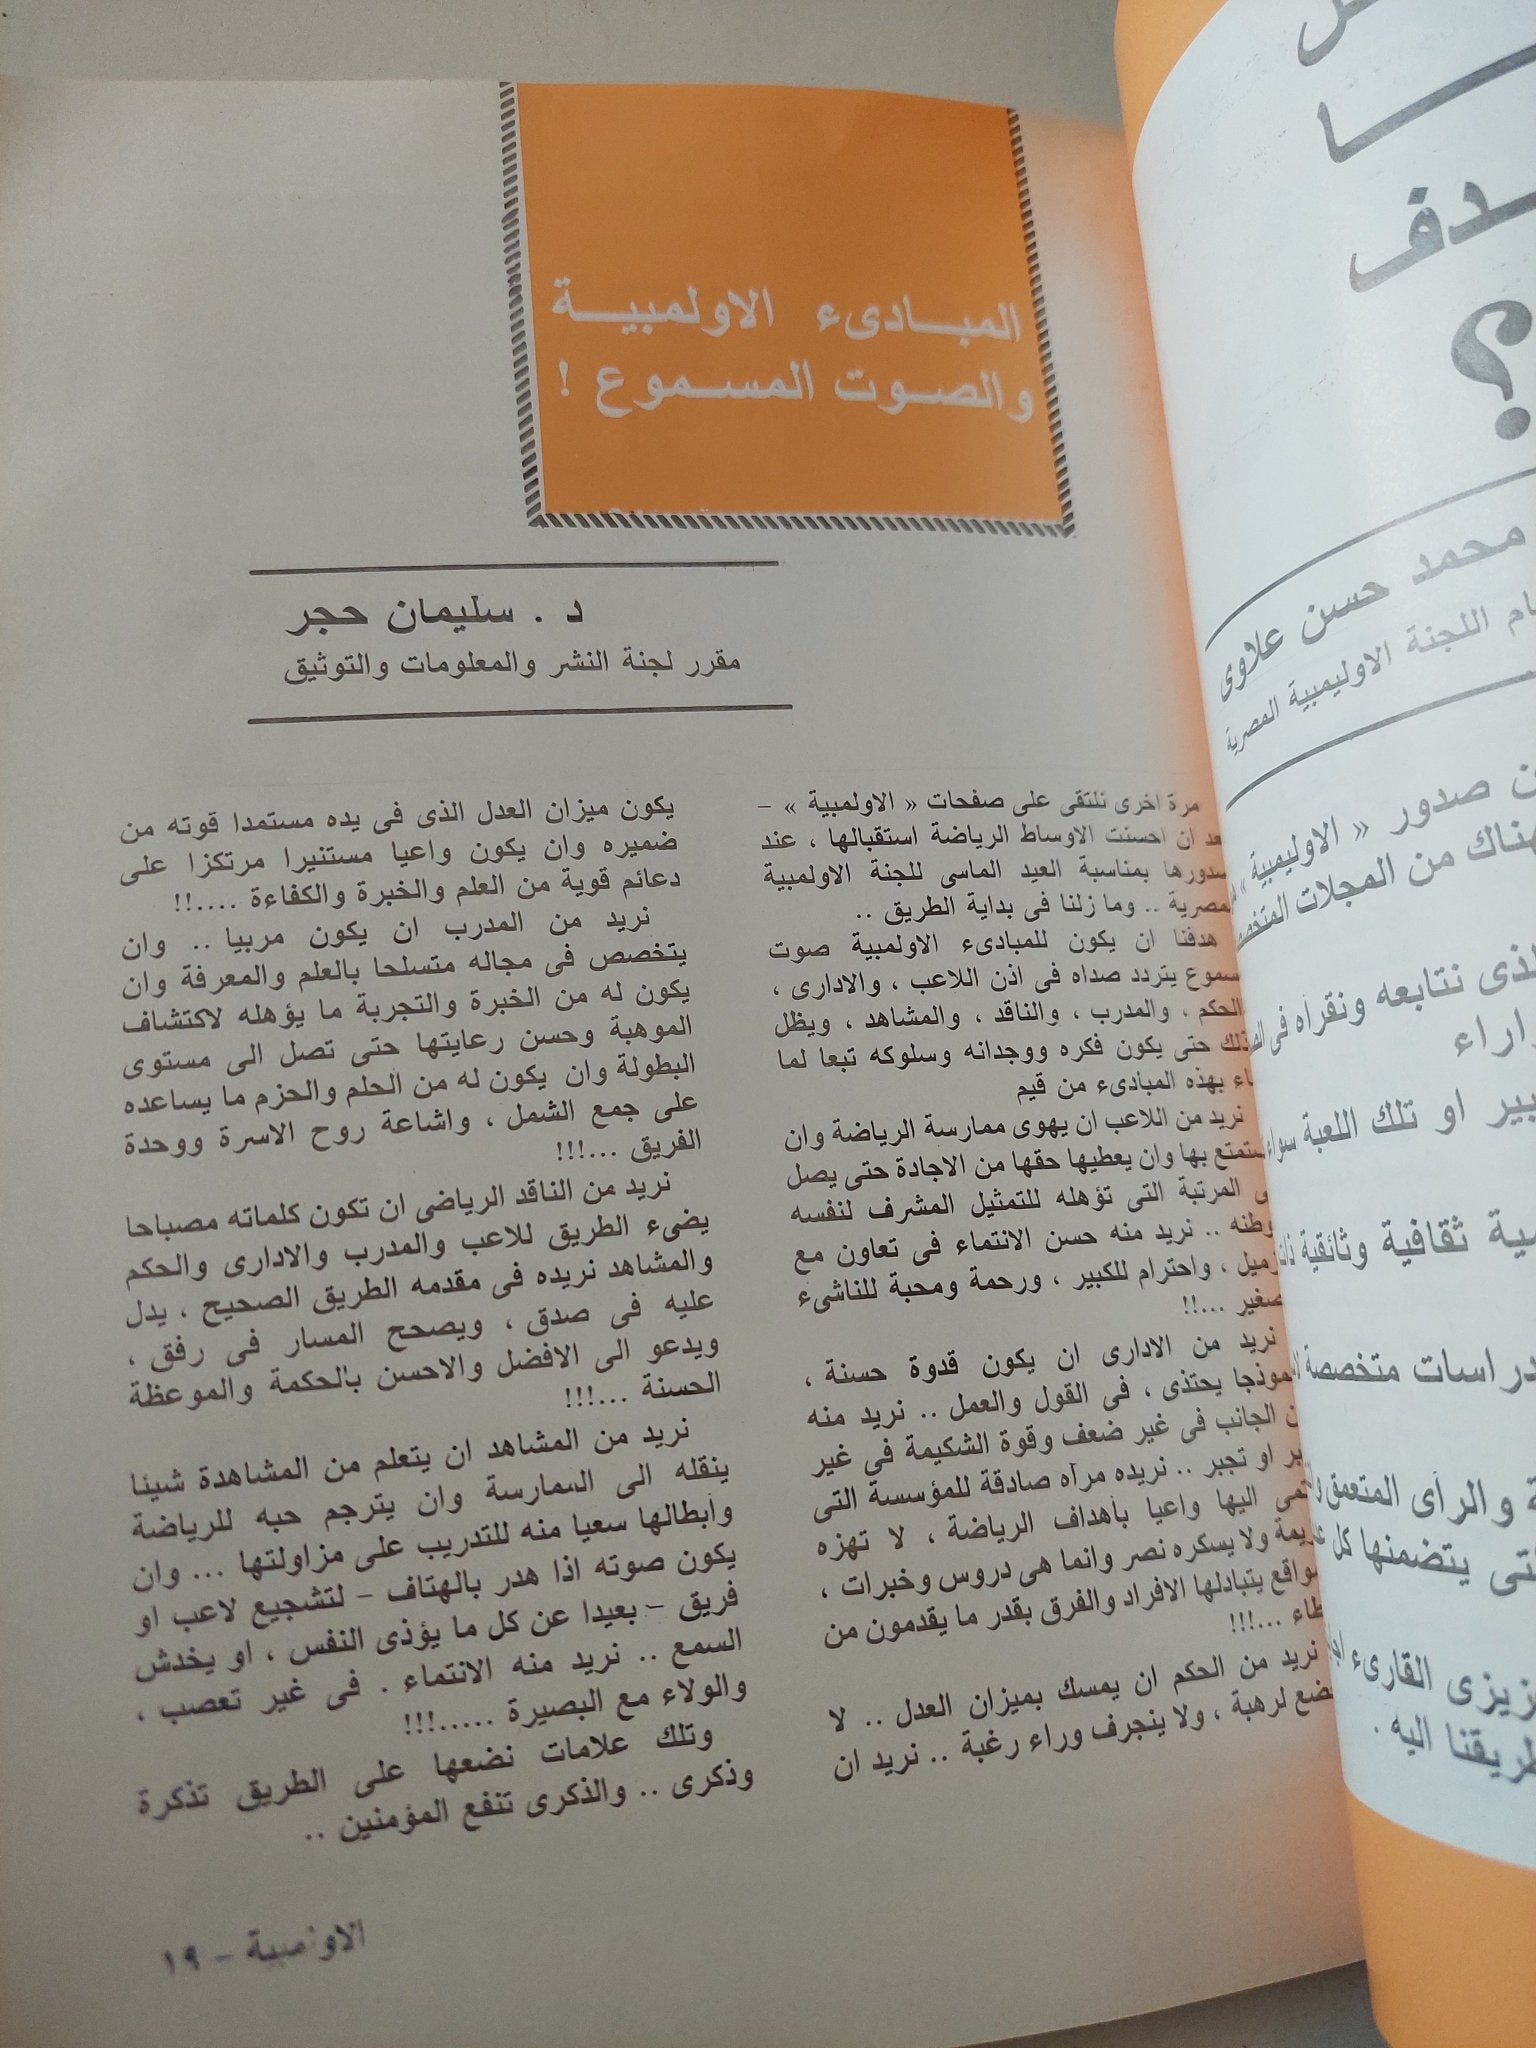 المبادىء الاولمبية
والصوت المسموع !
د . سليمان حجر
مقرر لجنة النشر والمعلومات والتوثيق
مرة اخرى نلتقى على صفحات « الاولمبية » –
ان احسنت الاوساط الرياضة استقبالها ، عند
بمناسبة العيد الماسى للجنة الاولمبية
.. وما زلنا فى بداية الطريق ..
هدفنا ان يكون للمبادىء الاولمبية صوت
يتردد صداه فى اذن اللاعب ، والادارى ،
الحكم ، والمدرب ، والناقد ، والمشاهد ، ويظل
حتى يكون فكره ووجدانه وسلوكه تبعا لما
بهذه المبادىء من قيم
نريد من اللاعب ان يهوى ممارسة الرياضة وان
بها وان يعطيها حقها من الاجادة حتى يصل
المرتبة التى تؤهله للتمثيل المشرف لنفسه
.. نريد منه حسن الانتماء فى تعاون مع
، واحترام للكبير ، ورحمة ومحبة للناشىء
...!!
نريد من الادارى ان يكون قدوة حسنة ،
يحتذى ، فى القول والعمل .. نريد منه
الجانب فى غير ضعف وقوة الشكيمة فى غير
او تجبر .. نريده مرآه صادقة للمؤسسة التى
اليها واعيا بأهداف الرياضة ، لا تهزه
ولا يسكره نصر وانما هى دروس وخبرات ،
يتبادلها الافراد والفرق بقدر ما يقدمون من
...!!!
نريد من الحكم ان يمسك بميزان العدل .. لا
لرهبة ، ولا ينجرف وراء رغبة .. نريد ان
يكون ميزان العدل الذى فى يده مستمدا قوته من
ضميره وان يكون واعيا مستنيرا مرتكزا على
دعائم قوية من العلم والخبرة والكفاءة ....!!
نريد من المدرب ان يكون مربيا .. وان
يتخصص فى مجاله متسلحا بالعلم والمعرفة وان
يكون له من الخبرة والتجربة ما يؤهله لاكتشاف
الموهبة وحسن رعايتها حتى تصل الى مستوى
البطولة وان يكون له من الحلم والحزم ما يساعده
على جمع الشمل ، واشاعة روح الاسرة ووحدة
الفريق ...!!!
نريد من الناقد الرياضى ان تكون كلماته مصباحا
يضىء الطريق للاعب والمدرب والادارى والحكم
والمشاهد نريده فى مقدمه الطريق الصحيح ، يدل
عليه فى صدق ، ويصحح المسار فى رفق ،
ويدعو الى الافضل والاحسن بالحكمة والموعظة
الحسنة ...!!!
نريد من المشاهد ان يتعلم من المشاهدة شيئا
ينقله الى الممارسة وان يترجم حبه للرياضة
وأبطالها سعيا منه للتدريب على مزاولتها ... وان
يكون صوته اذا هدر بالهتاف – لتشجيع لاعب او
فريق – بعيدا عن كل ما يؤذى النفس ، او يخدش
السمع .. نريد منه الانتماء . فى غير تعصب ،
والولاء مع البصيرة .....!!!
وتلك علامات نضعها على الطريق تذكرة
وذكرى .. والذكرى تنفع المؤمنين ..
الاولمبية – ١٩
؟
محمد حسن علاوى
اللجنة الاوليمبية المصرية
صدور « الاوليمبية »
من المجلات
نتابعه ونقرأه فى
او تلك اللعبة سواء
ثقافية وثائقية
متخصصة
والرأى المتعمق
يتضمنها كل
القارىء
اليه .